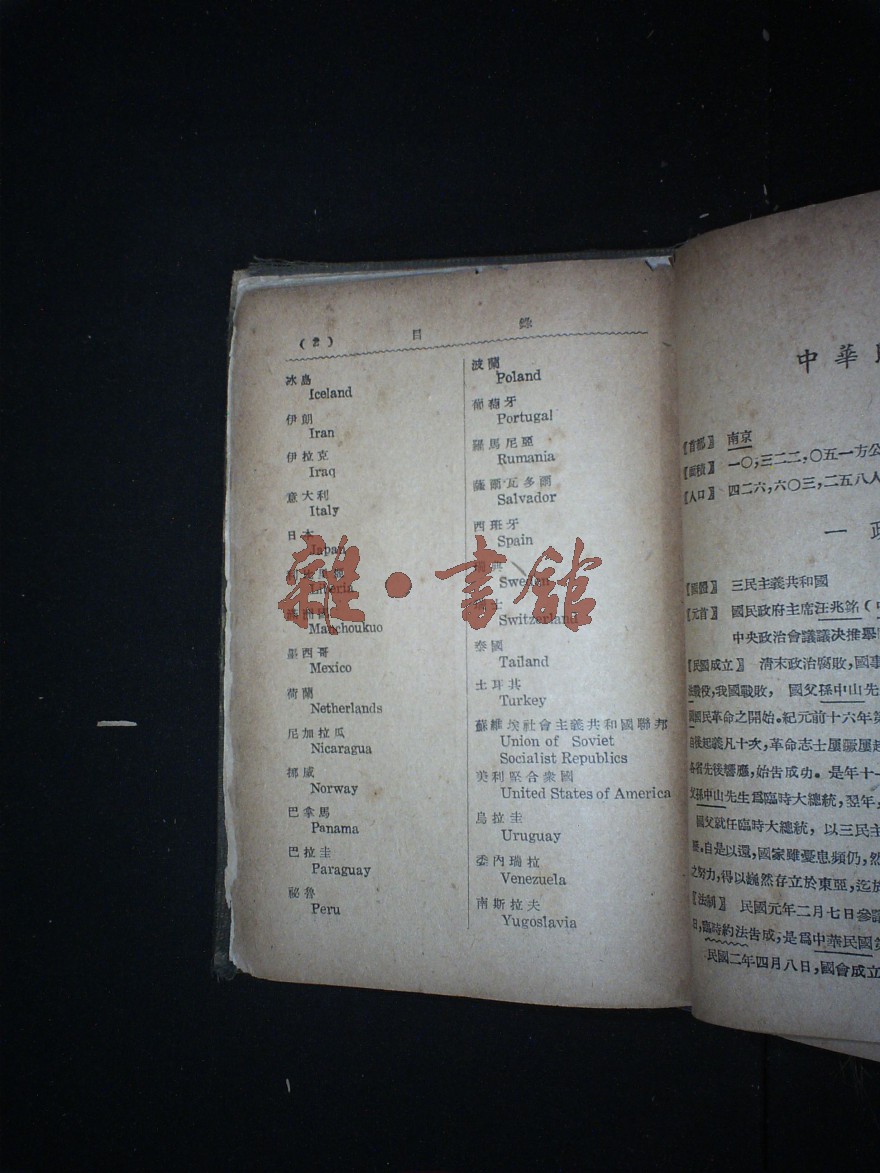 (2) 目 錄
冰島
Iceland
伊朗
Iran
伊拉克
Iraq
意大利
Italy
日本
Japan
Liberia
Manchoukuo
墨西哥
Mexico
荷蘭
Netherlands
尼加拉瓜
Nicaragua
挪威
Norway
巴拿馬
Panama
巴拉圭
Paraguay
祕魯
Peru
波蘭
Poland
葡萄牙
Portugal
羅馬尼亞
Rumania
薩爾瓦多爾
Salvador
西班牙
Spain
瑞典
Sweden
瑞士
Switzerland
泰國
Tailand
土耳其
Turkey
蘇維埃社會主義共和國聯邦
Union of Soviet
Socialist Republics
美利堅合衆國
United States of America
烏拉圭
Uruguay
委內瑞拉
Venezuela
南斯拉夫
Yugoslavia
雜·書館
中華
【首都】 南京
【面積】 一〇,三二二,〇五一方公
【人口】 四二六,六〇三,二五八人
一 政
【國體】 三民主義共和國
【元首】 國民政府主席汪兆銘(
中央政治會議議決推舉
【民國成立】 清末政治腐敗,國事
戰役,我國戰敗, 國父孫中山先
國民革命之開始。紀元前十六年第
後起義凡十次,革命志士屢蹶屢起
各省先後響應,始告成功。是年十一
父孫中山先生爲臨時大總統,翌年,
國父就任臨時大總統, 以三民主
自是以還,國家雖憂患頻仍,然
之努力,得以巍然存立於東亞,迄於
【法制】 民國元年二月七日參議
日,臨時約法告成,是爲中華民國第
民國二年四月八日,國會成立